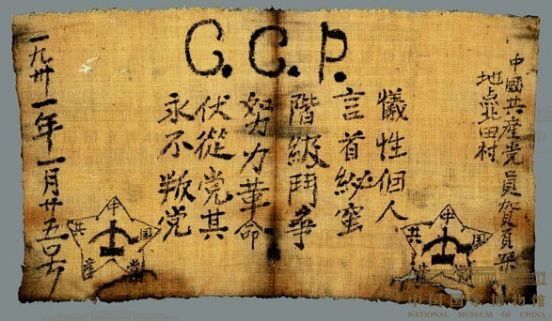 C.C.P.
中國共產党員賀頁朵
地点北田村
犧牲個人
言首秘蜜
階級鬥争
努力革命
伏從党其
永不叛党
一九卅一年一月廿五号
中国共產党
中国共產党
中国国家博物馆
NATIONAL MUSEUM OF CHINA